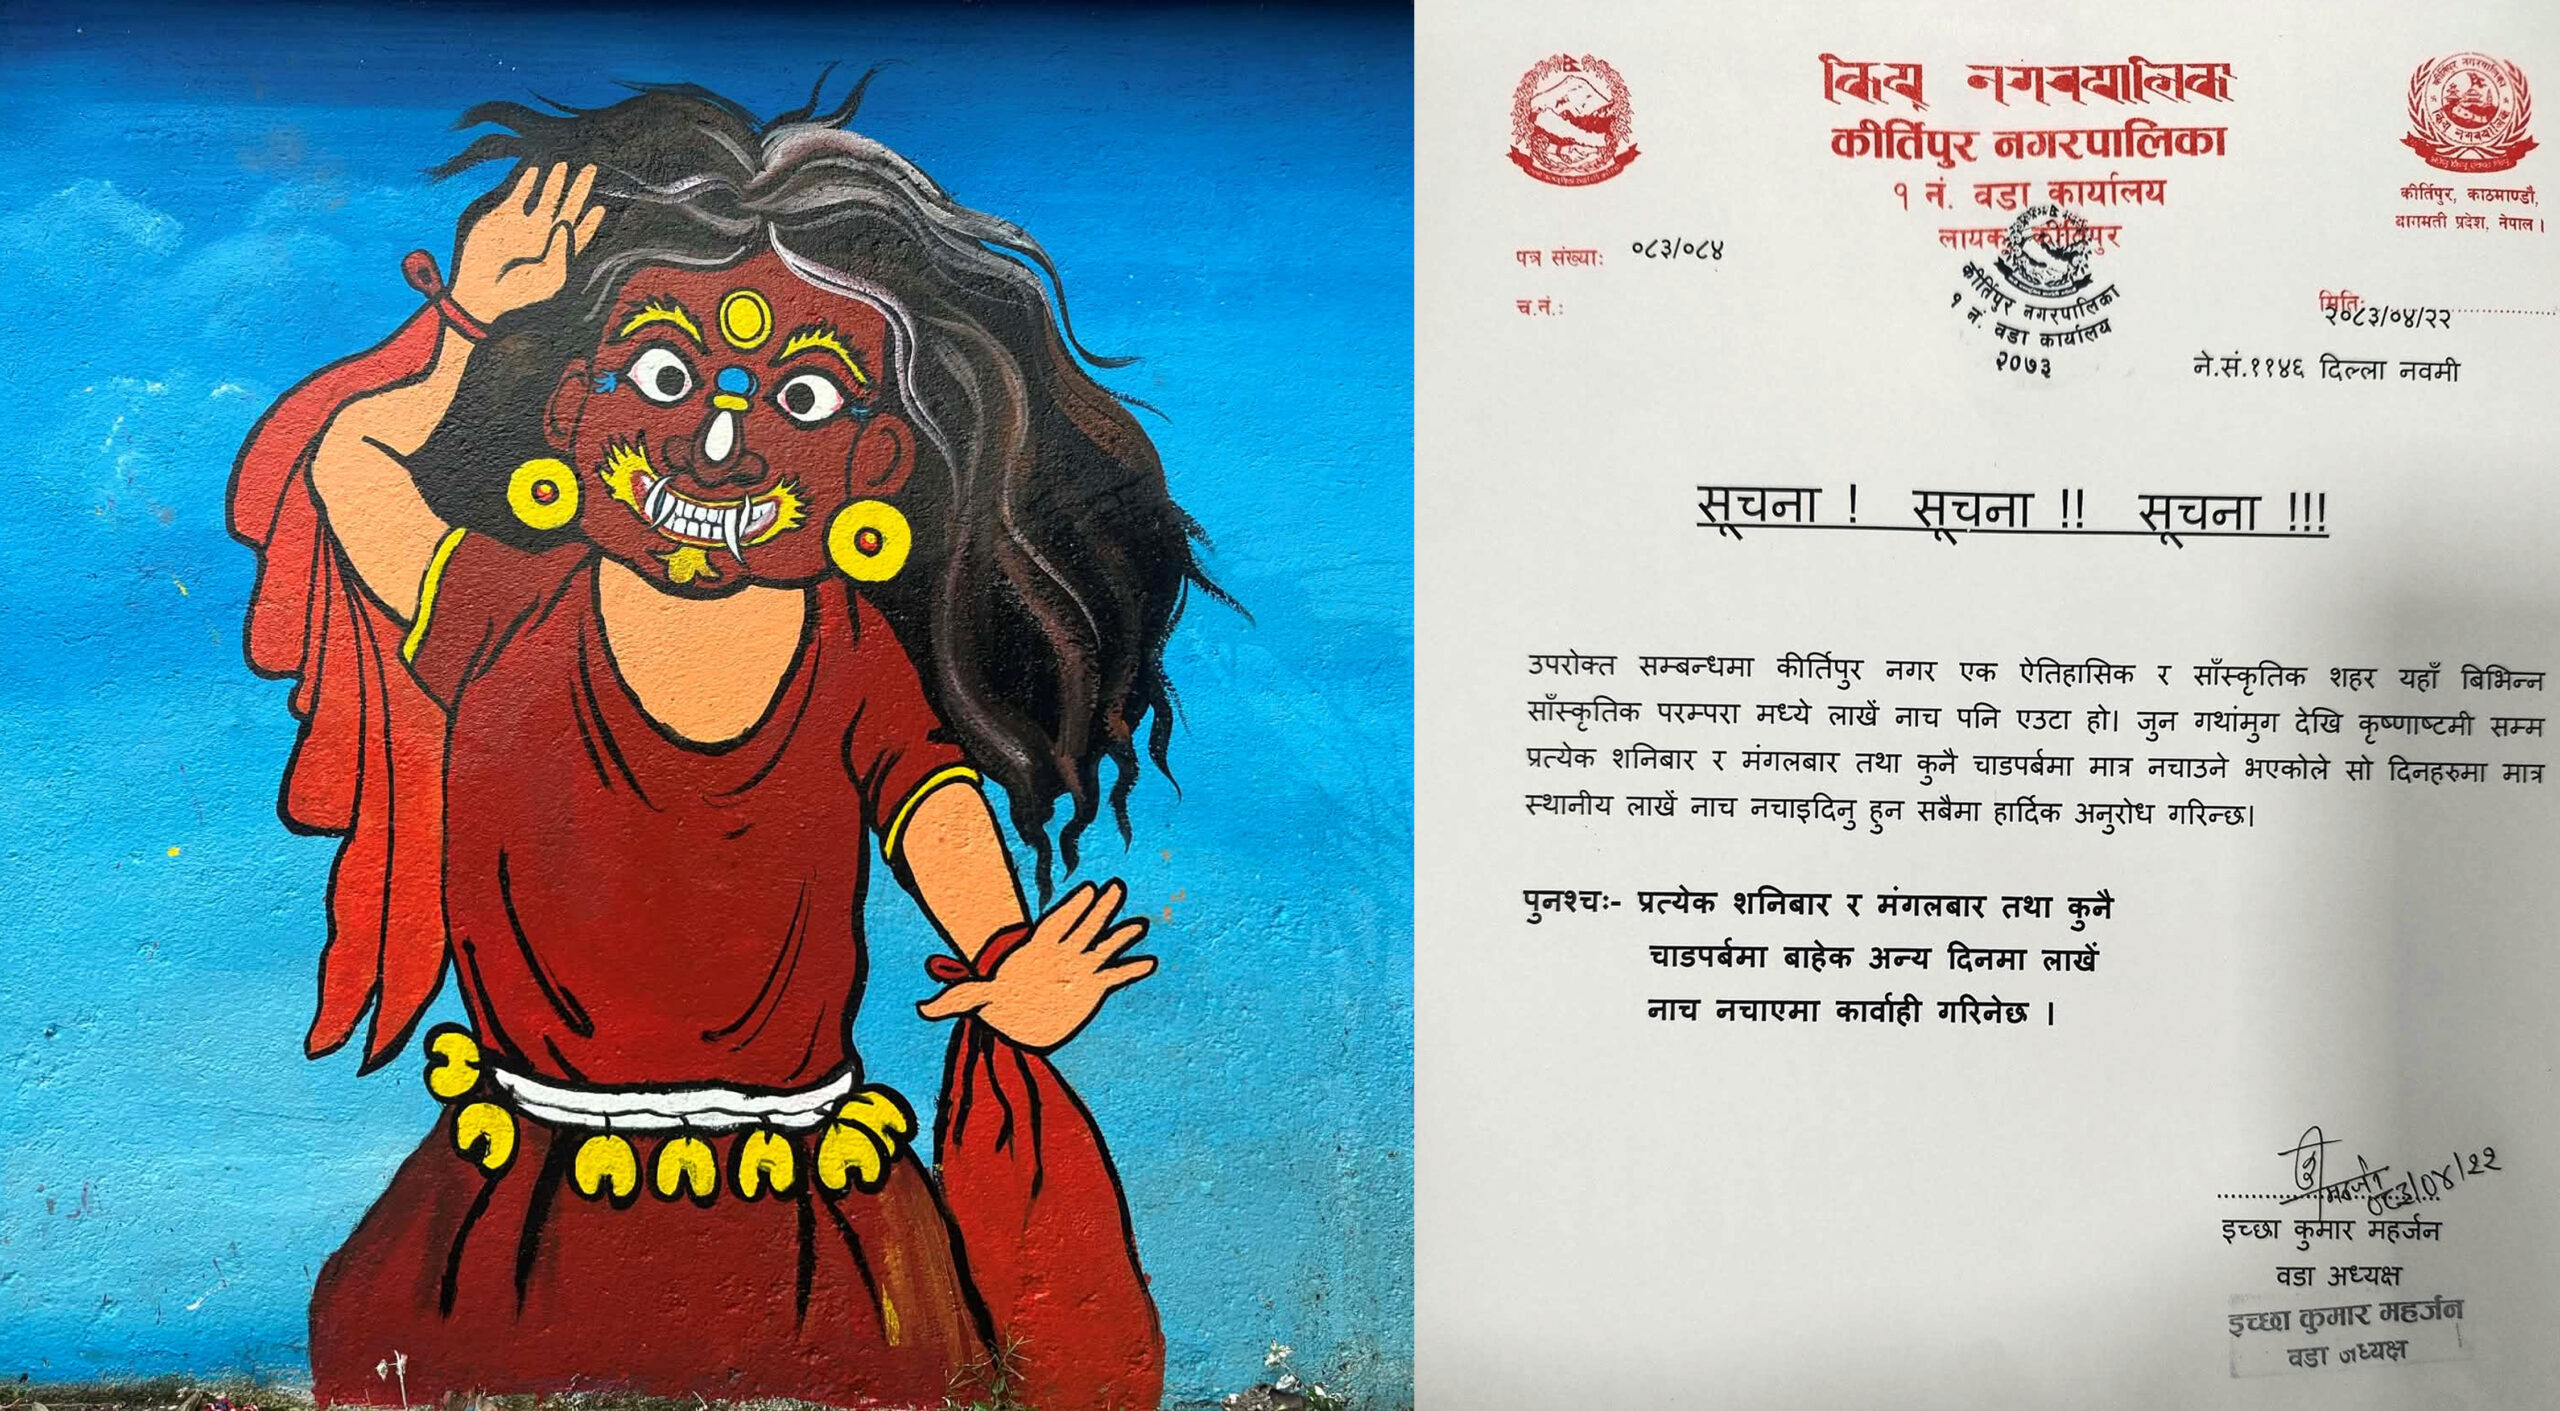 कीर्तिपुर नगरपालिका
१ नं. वडा कार्यालय
लायकू कीर्तिपुर
कीर्तिपुर, काठमाण्डौ,
बागमती प्रदेश, नेपाल ।
पत्र संख्याः ०८३/०८४
च.नं.:
कीर्तिपुर नगरपालिका
१ नं. वडा कार्यालय
२०७३
मितिः २०८३/०४/२२
ने.सं.११४६ दिल्ला नवमी
सूचना ! सूचना !! सूचना !!!
उपरोक्त सम्बन्धमा कीर्तिपुर नगर एक ऐतिहासिक र साँस्कृतिक शहर यहाँ बिभिन्न
साँस्कृतिक परम्परा मध्ये लाखें नाच पनि एउटा हो। जुन गथांमुग देखि कृष्णाष्टमी सम्म
प्रत्येक शनिबार र मंगलबार तथा कुनै चाडपर्बमा मात्र नचाउने भएकोले सो दिनहरुमा मात्र
स्थानीय लाखें नाच नचाइदिनु हुन सबैमा हार्दिक अनुरोध गरिन्छ।
पुनश्चः- प्रत्येक शनिबार र मंगलबार तथा कुनै
चाडपर्बमा बाहेक अन्य दिनमा लाखें
नाच नचाएमा कार्वाही गरिनेछ ।
महर्जन ०८३/०४/२२
इच्छा कुमार महर्जन
वडा अध्यक्ष
इच्छा कुमार महर्जन
वडा अध्यक्ष